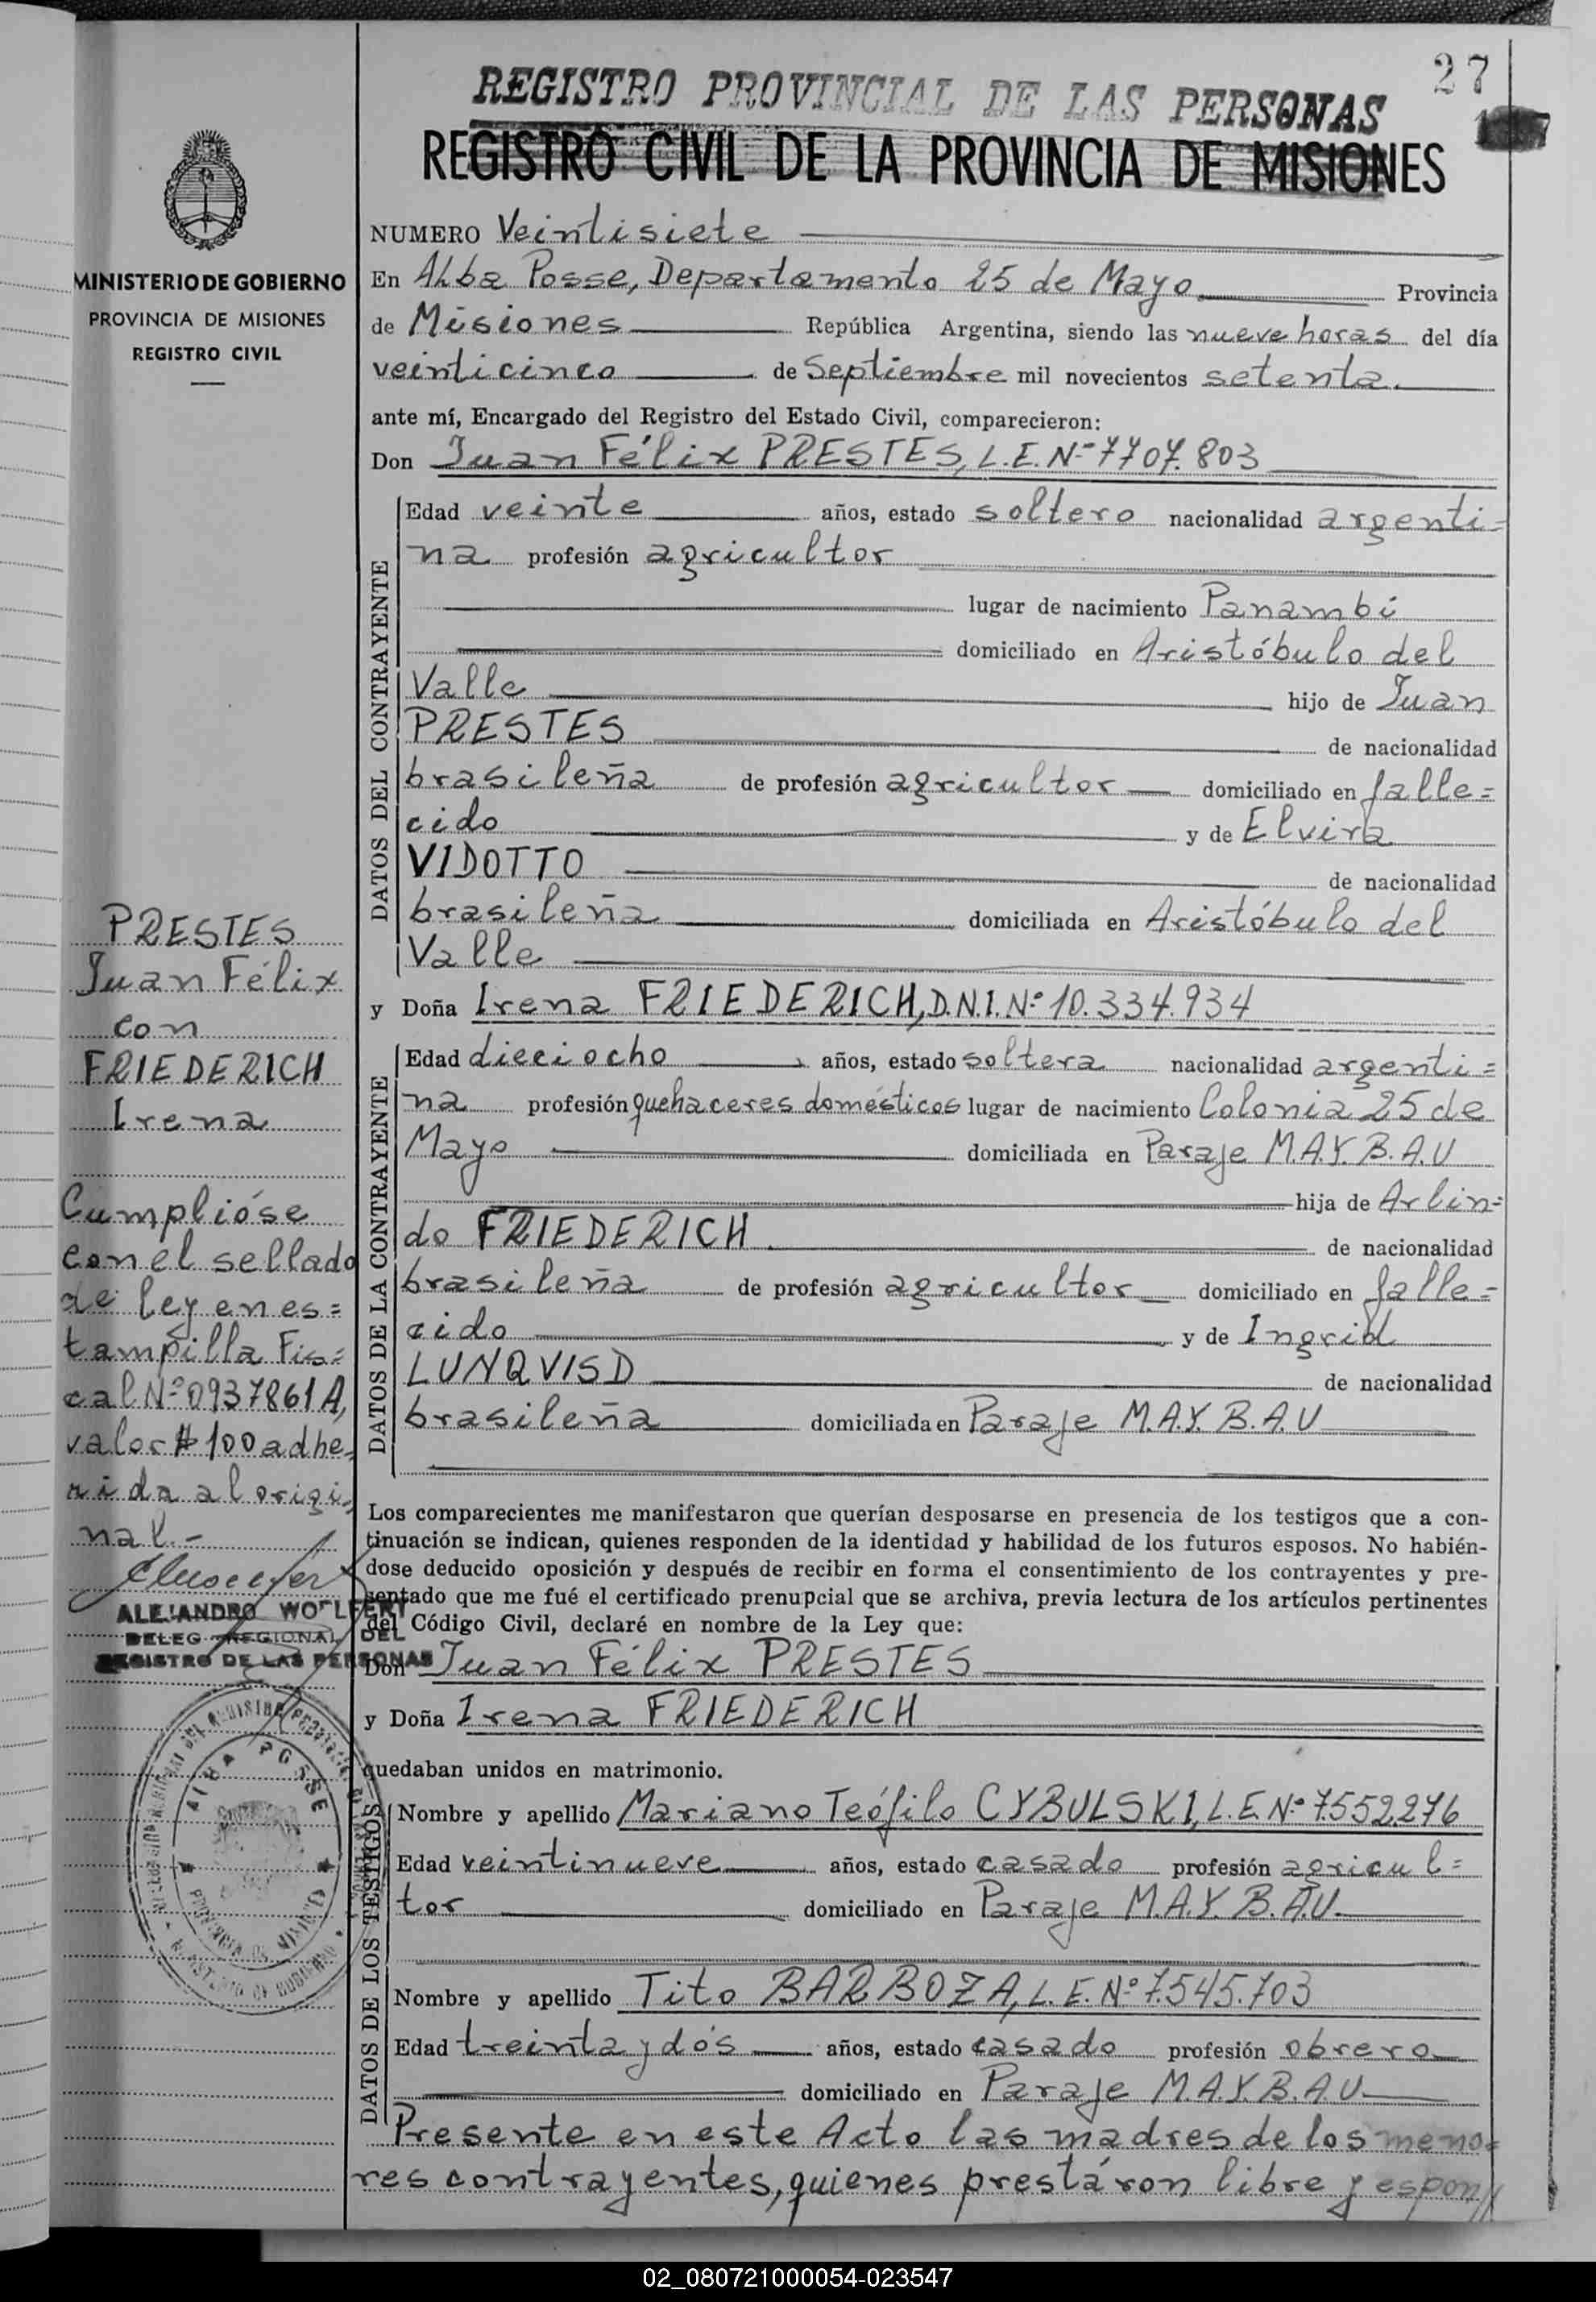 27
REGISTRO PROVINCIAL DE LAS PERSONAS
REGISTRO CIVIL DE LA PROVINCIA DE MISIONES
MINISTERIO DE GOBIERNO
PROVINCIA DE MISIONES
REGISTRO CIVIL
NUMERO Veintisiete
En Alba Posse, Departamento 25 de Mayo Provincia
de Misiones República Argentina, siendo las nueve horas del día
veinticinco de Septiembre mil novecientos setenta.
ante mí, Encargado del Registro del Estado Civil, comparecieron:
Don Juan Félix PRESTES, L.E. Nº 7707.803
DATOS DEL CONTRAYENTE
Edad veinte años, estado soltero nacionalidad argenti=
na profesión agricultor
lugar de nacimiento Panambí
domiciliado en Aristóbulo del
Valle hijo de Juan
PRESTES de nacionalidad
brasileña de profesión agricultor domiciliado en falle=
cido y de Elvira
VIDOTTO de nacionalidad
brasileña domiciliada en Aristóbulo del
Valle
y Doña Irena FRIEDERICH, D.N.I. Nº 10.334.934
DATOS DE LA CONTRAYENTE
Edad dieciocho años, estado soltera nacionalidad argenti=
na profesión quehaceres domésticos lugar de nacimiento Colonia 25 de
Mayo domiciliada en Paraje M.A.Y.B.A.U
hija de Arlin=
do FRIEDERICH. de nacionalidad
brasileña de profesión agricultor domiciliado en falle=
cido y de Ingrid
LUNQVISD de nacionalidad
brasileña domiciliada en Paraje M.A.Y.B.A.U
Los comparecientes me manifestaron que querían desposarse en presencia de los testigos que a con-
tinuación se indican, quienes responden de la identidad y habilidad de los futuros esposos. No habién-
dose deducido oposición y después de recibir en forma el consentimiento de los contrayentes y pre-
sentado que me fué el certificado prenupcial que se archiva, previa lectura de los artículos pertinentes
del Código Civil, declaré en nombre de la Ley que:
Don Juan Félix PRESTES
y Doña Irena FRIEDERICH
quedaban unidos en matrimonio.
DATOS DE LOS TESTIGOS
Nombre y apellido Mariano Teófilo CYBULSKI, L.E. Nº 7.552.276
Edad veintinueve años, estado casado profesión agricul=
tor domiciliado en Paraje M.A.Y.B.A.U.
Nombre y apellido Tito BARBOZA, L.E. Nº 7.545.703
Edad treinta y dós años, estado casado profesión obrero
domiciliado en Paraje M.A.Y.B.A.U
Presente en este Acto las madres de los meno=
res contrayentes, quienes prestáron libre y espon//
PRESTES
Juan Félix
con
FRIEDERICH
Irena
Cumplióse
con el sellado
de ley en es=
tampilla Fis=
cal Nº 0937861 A,
valor $ 100 adhe
rida al origi
nal.-
ALEJANDRO WOLFERT
DELEG REGIONAL DEL
REGISTRO DE LAS PERSONAS
ALBA POSSE
PROVINCIA DE MISIONES
MINISTERIO DE GOBIERNO
02_080721000054-023547